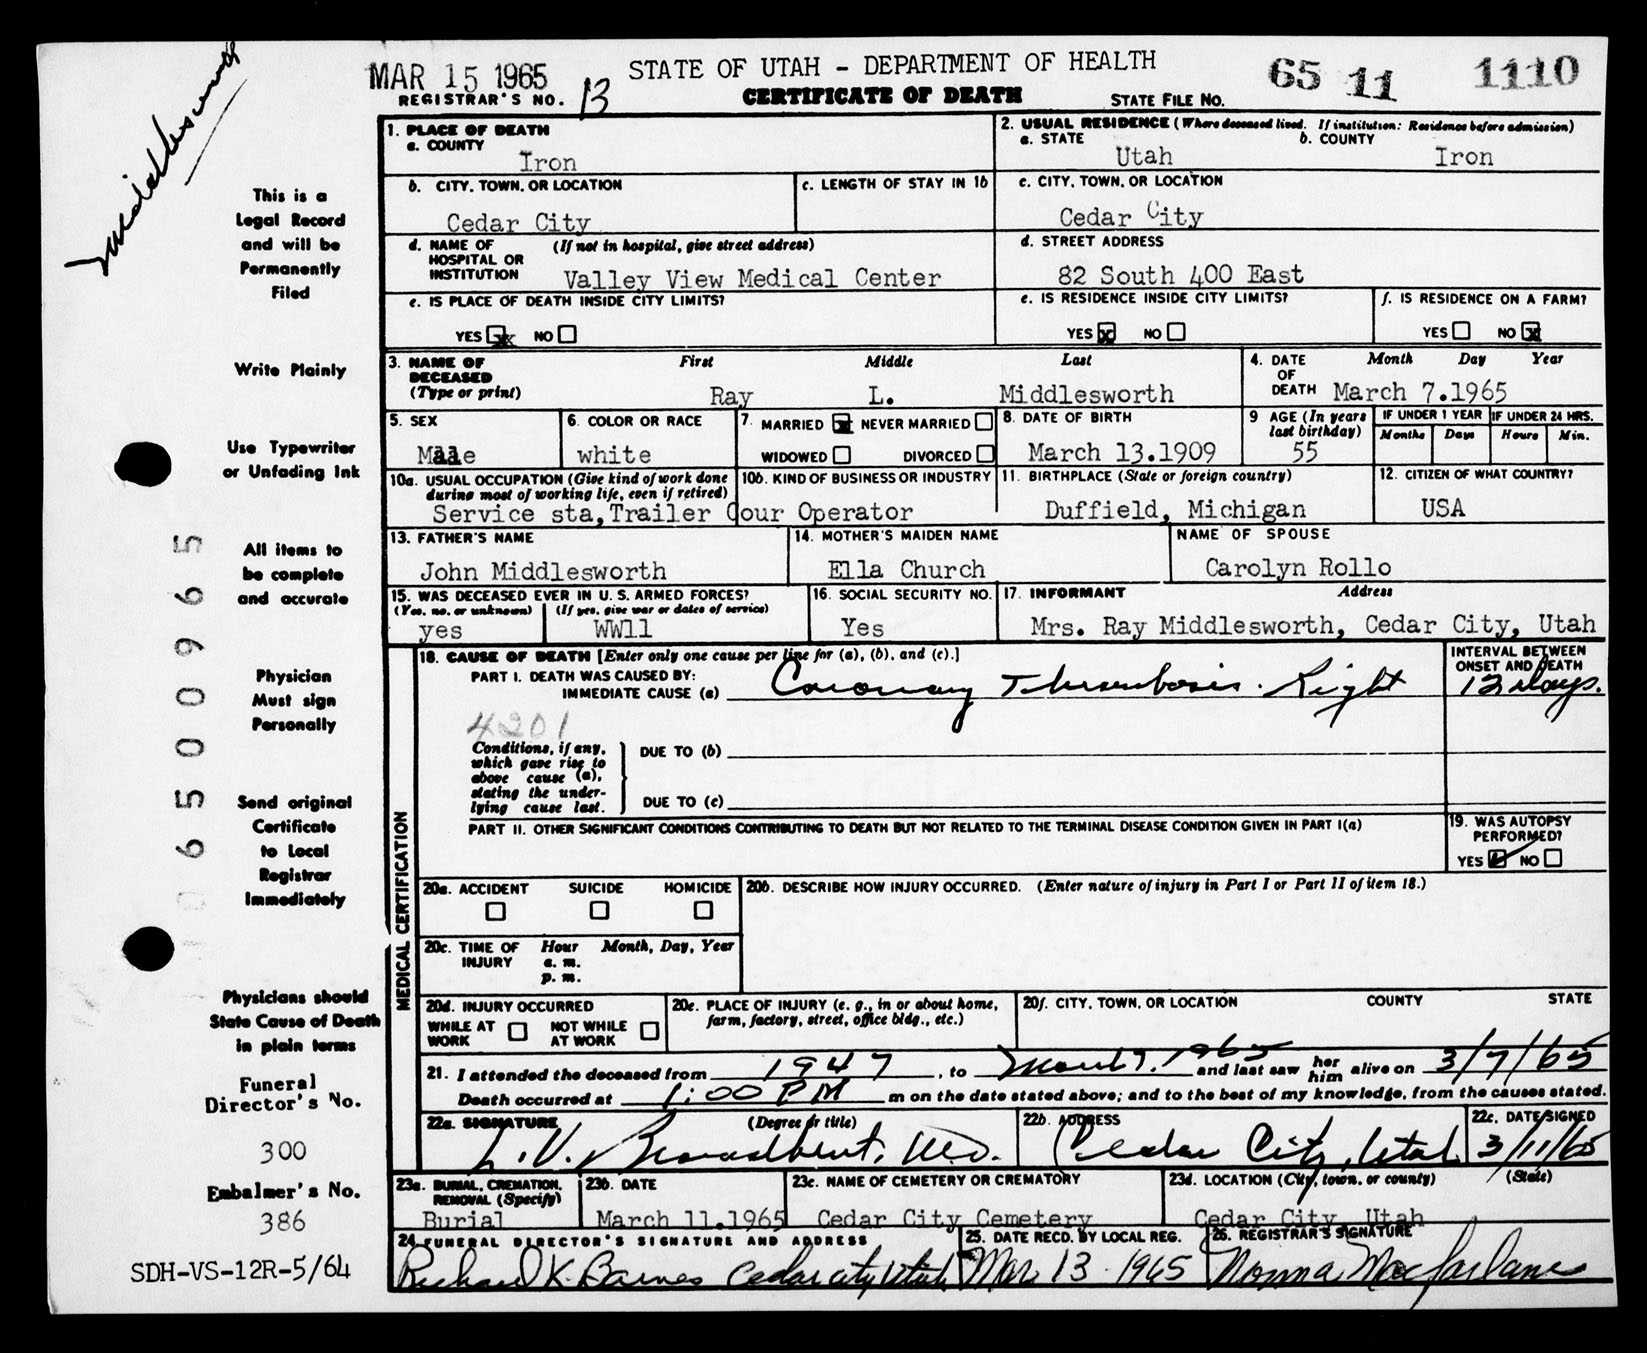 Middlesworth
MAR 15 1965
STATE OF UTAH - DEPARTMENT OF HEALTH
65 11 1110
REGISTRAR'S NO. 13
CERTIFICATE OF DEATH
STATE FILE NO.
This is a
Legal Record
and will be
Permanently
Filed
Write Plainly
Use Typewriter
or Unfading Ink
All items to
be complete
and accurate
Physician
Must sign
Personally
Send original
Certificate
to Local
Registrar
Immediately
Physicians should
State Cause of Death
in plain terms
Funeral
Director's No.
300
Embalmer's No.
386
SDH-VS-12R-5/64
0 65 0 0 9 6 5
1. PLACE OF DEATH
a. COUNTY
Iron
2. USUAL RESIDENCE (Where deceased lived. If institution: Residence before admission)
a. STATE b. COUNTY
Utah Iron
b. CITY, TOWN, OR LOCATION
Cedar City
c. LENGTH OF STAY IN 1b
c. CITY, TOWN, OR LOCATION
Cedar City
d. NAME OF (If not in hospital, give street address)
HOSPITAL OR
INSTITUTION Valley View Medical Center
d. STREET ADDRESS
82 South 400 East
e. IS PLACE OF DEATH INSIDE CITY LIMITS?
YES xx NO
e. IS RESIDENCE INSIDE CITY LIMITS?
YES x NO
f. IS RESIDENCE ON A FARM?
YES NO x
3. NAME OF First Middle Last
DECEASED
(Type or print) Ray L. Middlesworth
4. DATE Month Day Year
OF
DEATH March 7.1965
5. SEX
Male
6. COLOR OR RACE
white
7. MARRIED x NEVER MARRIED
WIDOWED DIVORCED
8. DATE OF BIRTH
March 13.1909
9 AGE (In years
last birthday)
55
IF UNDER 1 YEAR IF UNDER 24 HRS.
Months Days Hours Min.
10a. USUAL OCCUPATION (Give kind of work done
during most of working life, even if retired)
10b. KIND OF BUSINESS OR INDUSTRY
Service sta,Trailer Cour Operator
11. BIRTHPLACE (State or foreign country)
Duffield, Michigan
12. CITIZEN OF WHAT COUNTRY?
USA
13. FATHER'S NAME
John Middlesworth
14. MOTHER'S MAIDEN NAME
Ella Church
NAME OF SPOUSE
Carolyn Rollo
15. WAS DECEASED EVER IN U. S. ARMED FORCES?
(Yes, no, or unknown) (If yes, give war or dates of service)
yes WW11
16. SOCIAL SECURITY NO.
Yes
17. INFORMANT Address
Mrs. Ray Middlesworth, Cedar City, Utah
MEDICAL CERTIFICATION
18. CAUSE OF DEATH [Enter only one cause per line for (a), (b), and (c).]
PART I. DEATH WAS CAUSED BY:
IMMEDIATE CAUSE (a) Coronary Thrombosis. Right
INTERVAL BETWEEN
ONSET AND DEATH
12 days.
4201
Conditions, if any,
which gave rise to
above cause (a),
stating the under-
lying cause last.
DUE TO (b)
DUE TO (c)
PART II. OTHER SIGNIFICANT CONDITIONS CONTRIBUTING TO DEATH BUT NOT RELATED TO THE TERMINAL DISEASE CONDITION GIVEN IN PART I(a)
19. WAS AUTOPSY
PERFORMED?
YES NO
20a. ACCIDENT SUICIDE HOMICIDE
20b. DESCRIBE HOW INJURY OCCURRED. (Enter nature of injury in Part I or Part II of item 18.)
20c. TIME OF Hour Month, Day, Year
INJURY a. m.
p. m.
20d. INJURY OCCURRED
WHILE AT NOT WHILE
WORK AT WORK
20e. PLACE OF INJURY (e. g., in or about home,
farm, factory, street, office bldg., etc.)
20f. CITY, TOWN, OR LOCATION COUNTY STATE
21. I attended the deceased from 1947, to March 7. 1965 and last saw her him alive on 3/7/65
Death occurred at 1:00 PM m on the date stated above; and to the best of my knowledge, from the causes stated.
22a. SIGNATURE (Degree or title)
L. V. Broadbent, M.D.
22b. ADDRESS
Cedar City, Utah.
22c. DATE SIGNED
3/11/65
23a. BURIAL, CREMATION,
REMOVAL (Specify)
Burial
23b. DATE
March 11.1965
23c. NAME OF CEMETERY OR CREMATORY
Cedar City Cemetery
23d. LOCATION (City, town, or county) (State)
Cedar City, Utah
24 FUNERAL DIRECTOR'S SIGNATURE AND ADDRESS
Richard K. Barnes Cedar City, Utah
25. DATE RECD. BY LOCAL REG.
Mar 13 1965
26. REGISTRAR'S SIGNATURE
Nonna Macfarlane